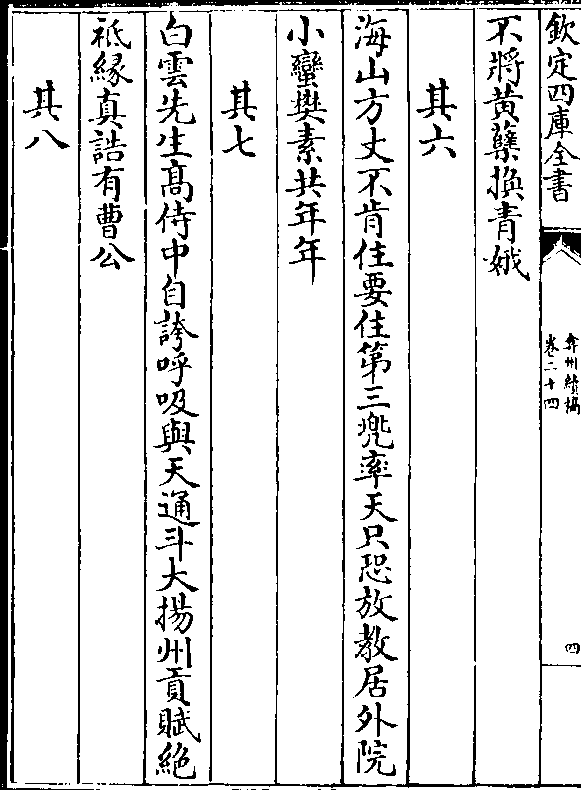 欽定四庫全書
弇州續稿
卷二十四
四
不將黃蘗換青娥
其六
海山方丈不肯住要住第三兠率天只恐放教居外院
小蠻樊素共年年
其七
白雲先生髙侍中自誇呼吸與天通斗大揚州貢賦絶
祗縁真誥有曹公
其八